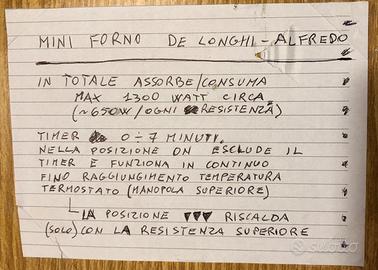 MINI FORNO DE LONGHI - ALFREDO
IN TOTALE ASSORBE/CONSUMA
MAX 1300 WATT CIRCA
(~650W/OGNI RESISTENZA)
TIMER 0÷7 MINUTI.
NELLA POSIZIONE ON ESCLUDE IL
TIMER E FUNZIONA IN CONTINUO
FINO RAGGIUNGIMENTO TEMPERATURA
TERMOSTATO (MANOPOLA SUPERIORE)
LA POSIZIONE ▼▼▼ RISCALDA
(SOLO) CON LA RESISTENZA SUPERIORE
subito.it